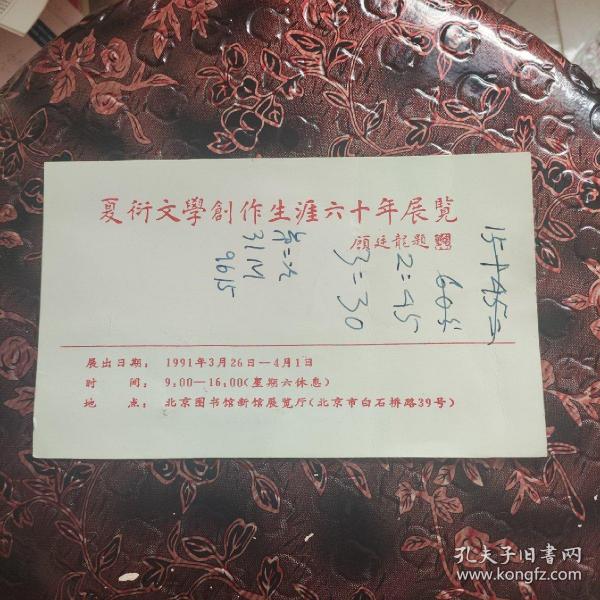 夏衍文學創作生涯六十年展覽
顾廷龍題
15
2:45
3=30
31M
9615
展出日期：1991年3月26日—4月1日
时　间：9:00—16:00(星期六休息)
地　点：北京图书馆新馆展览厅(北京市白石桥路39号)
孔夫子旧書网
www.kongfz.com